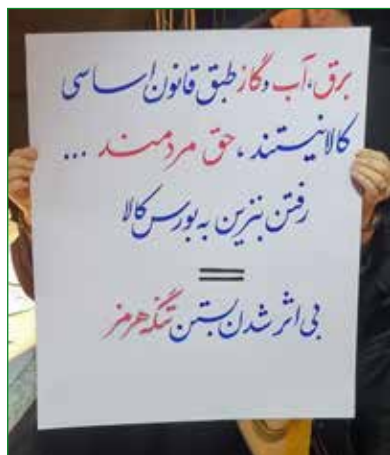 برق، آب و گاز طبق قانون اساسی
کالا نیستند، حق مردمند ...
رفتن بنزین به بورس کالا
=
بی اثر شدن بستن تنگه هرمز